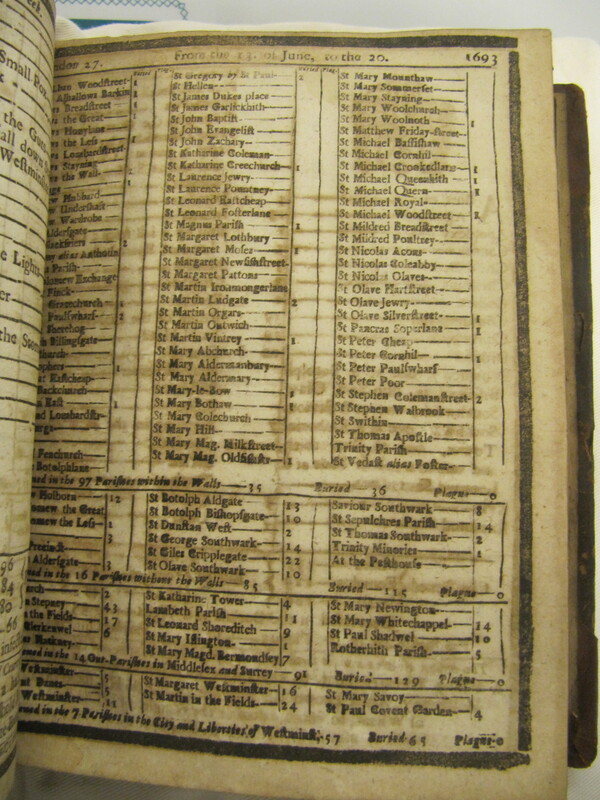 ndon 27. From the 13. of June, to the 20. 1693
Buried Plag.
Buried Plag.
ban Woodstreet
Alhallows Barkin 1
s Breadstreet 1
s the Great 1
s Honylane
s the Less 1
s Lumbardstreet
s Stayning
s the Wall 1
Hubbard
Undershaft
Wardrobe
Aldersgate
lackfriers 2
Parish
lomew Exchange
Finck
Gracechurch 2
Paulswharf 2
Sherehog
Billingsgate
church
ophers 1
t Eastcheap
Backchurch
East 1
nd Lombardstr
Fenchurch
Botolphlane
St Gregory by St Paul 2
St Hellen
St James Dukes place
St James Garlickhith
St John Baptist
St John Evangelist
St John Zachary
St Katharine Coleman
St Katharine Creechurch 1
St Laurence Jewry
St Laurence Pountney
St Leonard Eastcheap
St Leonard Fosterlane
St Magnus Parish 1
St Margaret Lothbury
St Margaret Moses 1
St Margaret Newfishstreet
St Margaret Pattons
St Martin Iroamongerlane
St Martin Ludgate 2
St Martin Orgars
St Martin Outwich
St Martin Vintrey 1
St Mary Abchurch
St Mary Aldermanbury
St Mary Aldermary
St Mary-le-Bow 1
St Mary Bothaw 1
St Mary Colechurch
St Mary Hill
St Mary Mag. Milkstreet
St Mary Mag. Oldfishstr 1
St Mary Mounthaw
St Mary Sommerset
St Mary Stayning
St Mary Woolchurch
St Mary Woolnoth 1
St Matthew Friday-street
St Michael Bassishaw
St Michael Cornhil
St Michael Crookedlane 1
St Michael Queenhith 1
St Michael Quern 1
St Michael Royal
St Michael Woodstreet 1
St Mildred Breadstreet
St Mildred Poultrey
St Nicolas Acons
St Nicolas Coleabby
St Nicolas Olaves
St Olave Hartstreet
St Olave Jewry
St Olave Silverstreet 1
St Pancras Soperlane 1
St Peter Cheap
St Peter Cornhil 1
St Peter Paulswharf
St Peter Poor
St Stephen Colemanstreet 2
St Stephen Walbrook
St Swithin
St Thomas Apostle
Trinity Parish
St Vedast alias Foster
ned in the 97 Parishes within the Walls 35 Buried 36 Plague 0
Holborn 12
omew the Great
omew the Less 1
Precinct
Aldersgate 3
St Botolph Aldgate 13
St Botolph Bishopsgate 10
St Dunstan West 2
St George Southwark 14
St Giles Cripplegate 22
St Olave Southwark 10
Saviour Southwark 8
St Sepulchres Parish 14
St Thomas Southwark 2
Trinity Minories 1
At the Pesthouse
ned in the 16 Parishes without the Walls 85 Buried 115 Plague 0
arch 2
Stepney 43
the Fields 17
Clerkenwel 6
Hackney
St Katharine Tower 4
Lambeth Parish 11
St Leonard Shoreditch 9
St Mary Islington 1
St Mary Magd. Bermondsey 7
St Mary Newington
St Mary Whitechappel 14
St Paul Shadwel 10
Rotherhith Parish 5
ned in the 14 Out-Parishes in Middlesex and Surrey 91 Buried 129 Plague 0
Westminster 5
nt Danes 5
Westminster 11
St Margaret Westminster 16
St Martin in the Fields 24
St Mary Savoy
St Paul Covent Garden 4
ned in the 7 Parishes in the City and Liberties of Westminst. 57 Buried 65 Plague 0